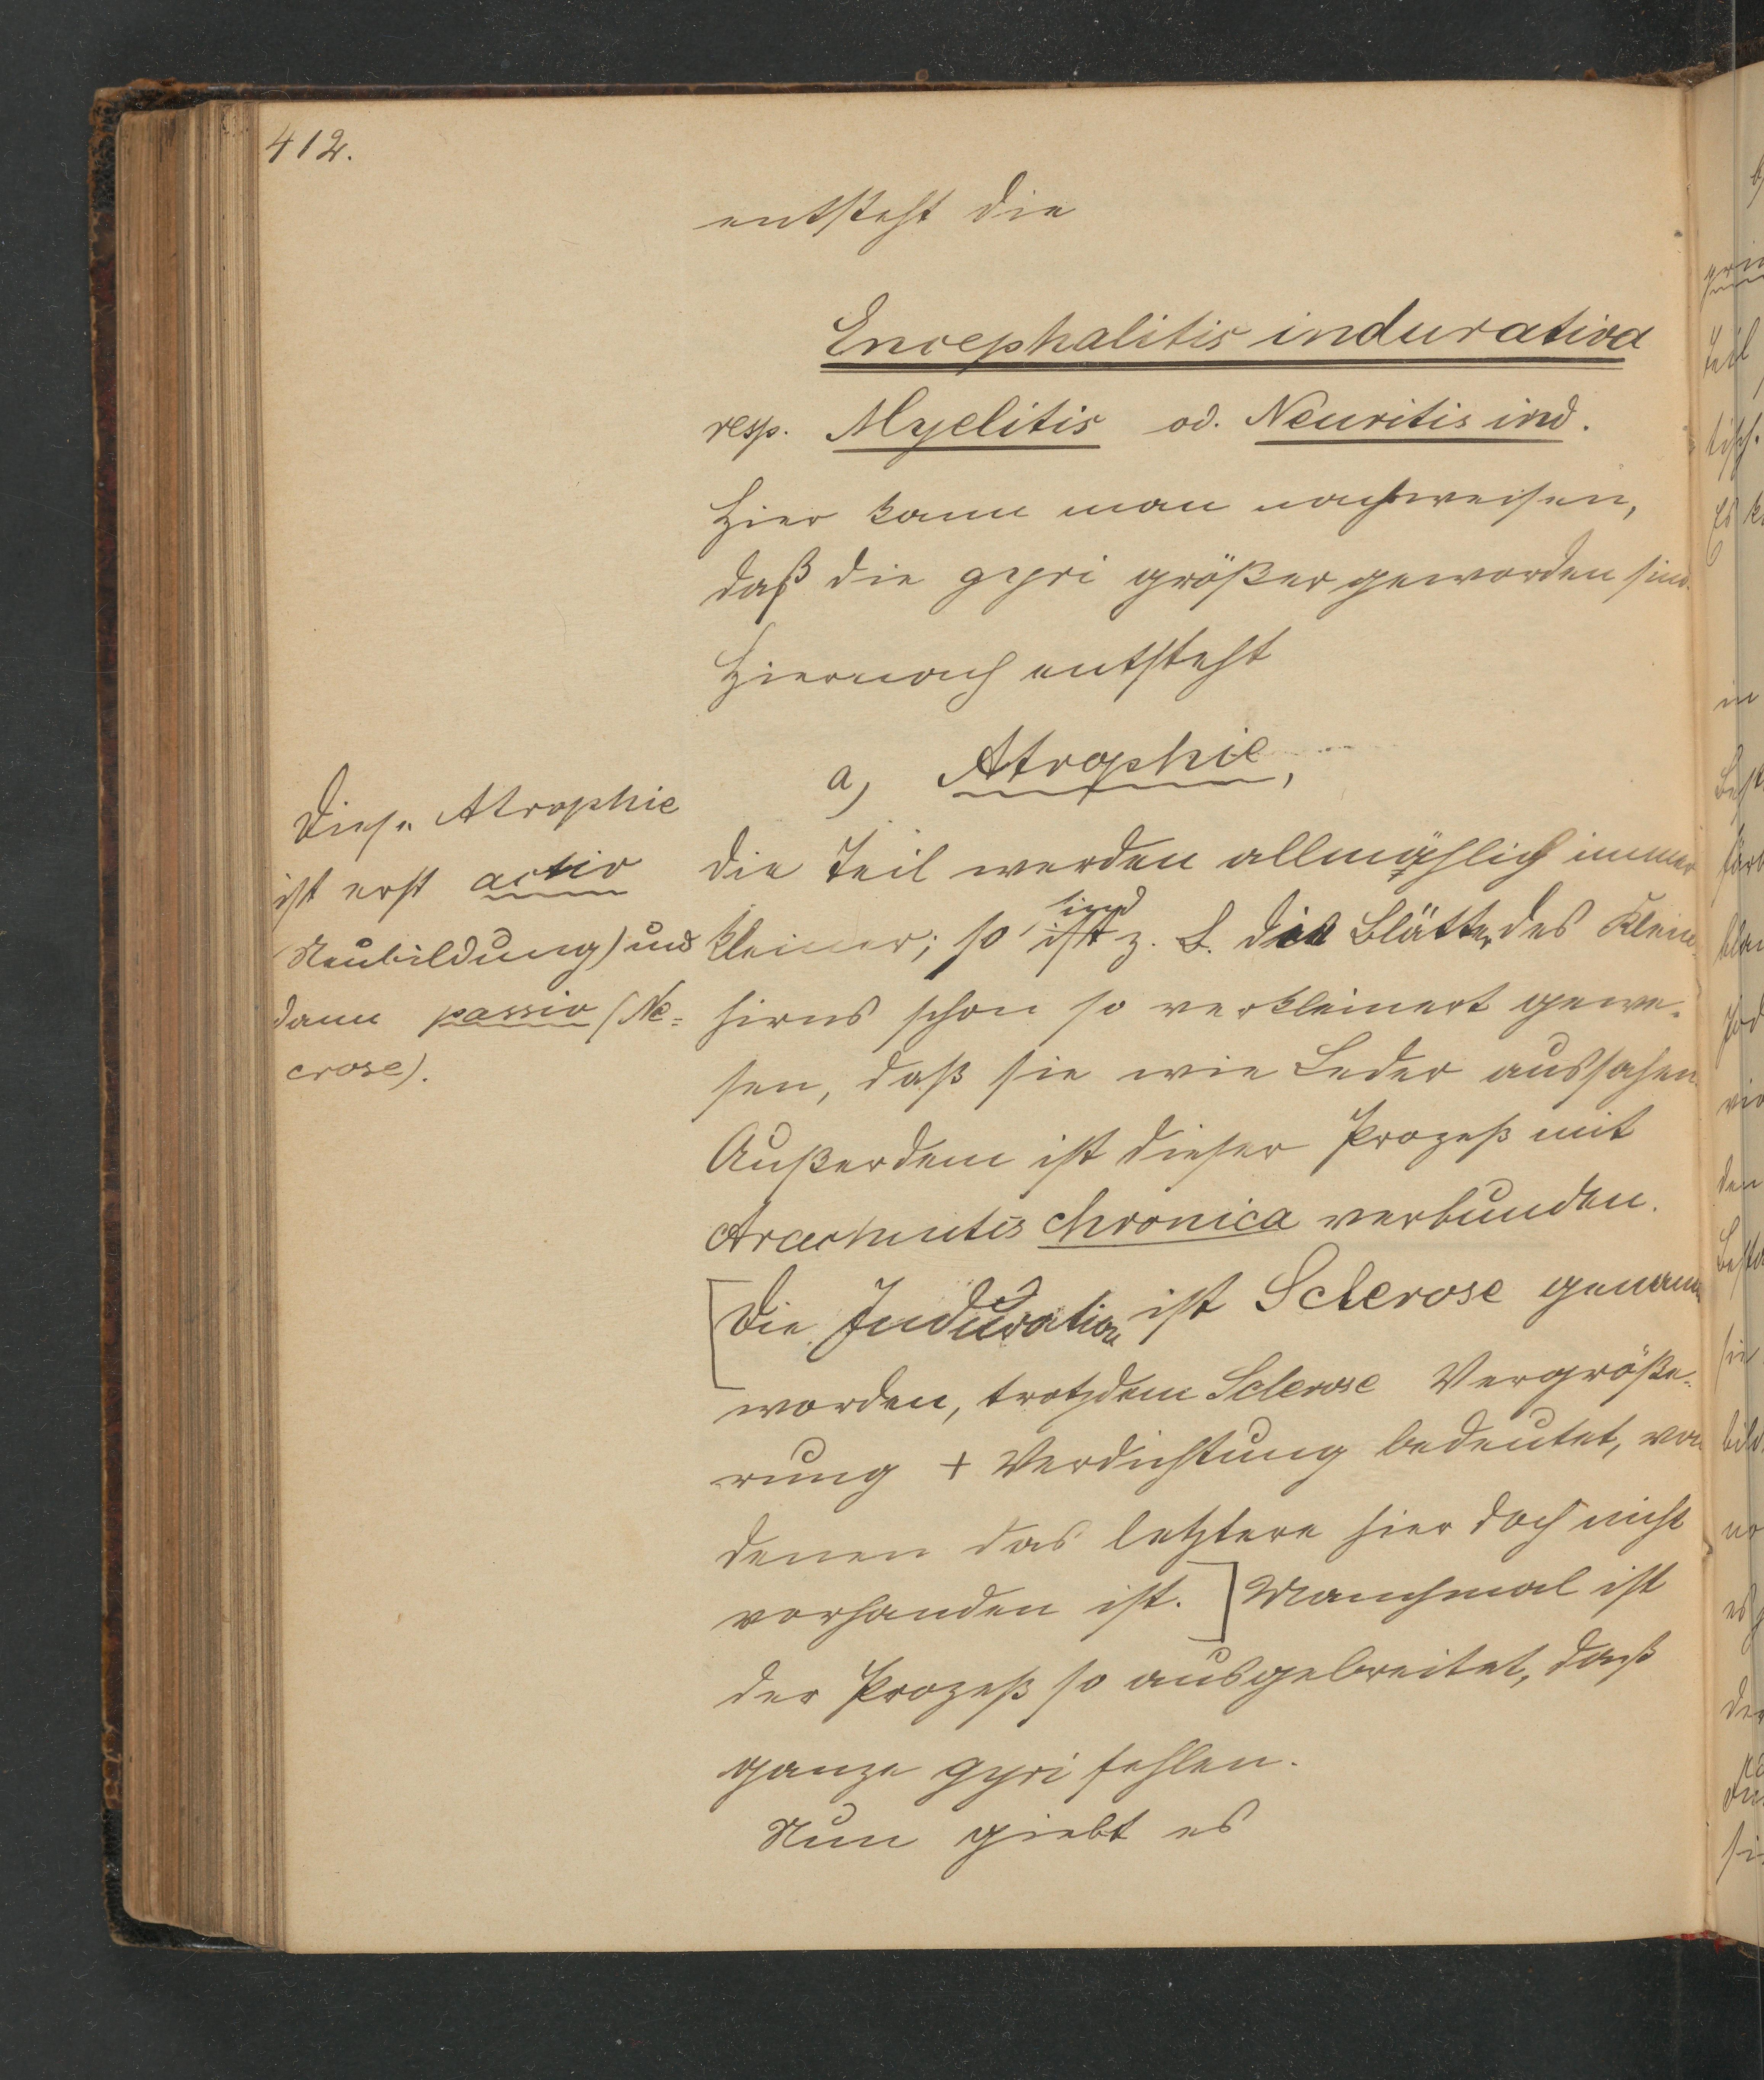 412.
entsteht die
Encephalitis indurativa
resp. Myelitis od. Neuritis ind.
Hier kann man nachweisen,
daß die gyri größer geworden sind.
Hiernach entsteht
a) Atrophie,
die Teil werden allmählich immer
kleiner; so sind z. B. die Blätter des Klein-
hirns schon so verkleinert gewe-
sen, daß sie wie Leder aussahen.
Außerdem ist dieser Prozeß mit
Arachnitis chronica verbunden.
[Die Induration ist Sclerose genannt
worden, trotzdem Sclerose Vergröße-
rung + Verdichtung bedeutet, von
denen das letztere hier doch nicht
vorhanden ist.] Manchmal ist
der Prozeß so ausgebreitet, daß
ganze gyri fehlen.
Nun giebt es
Diese Atrophie
ist erst activ
(Neubildung) und
dann passiv (Ne-
crose).